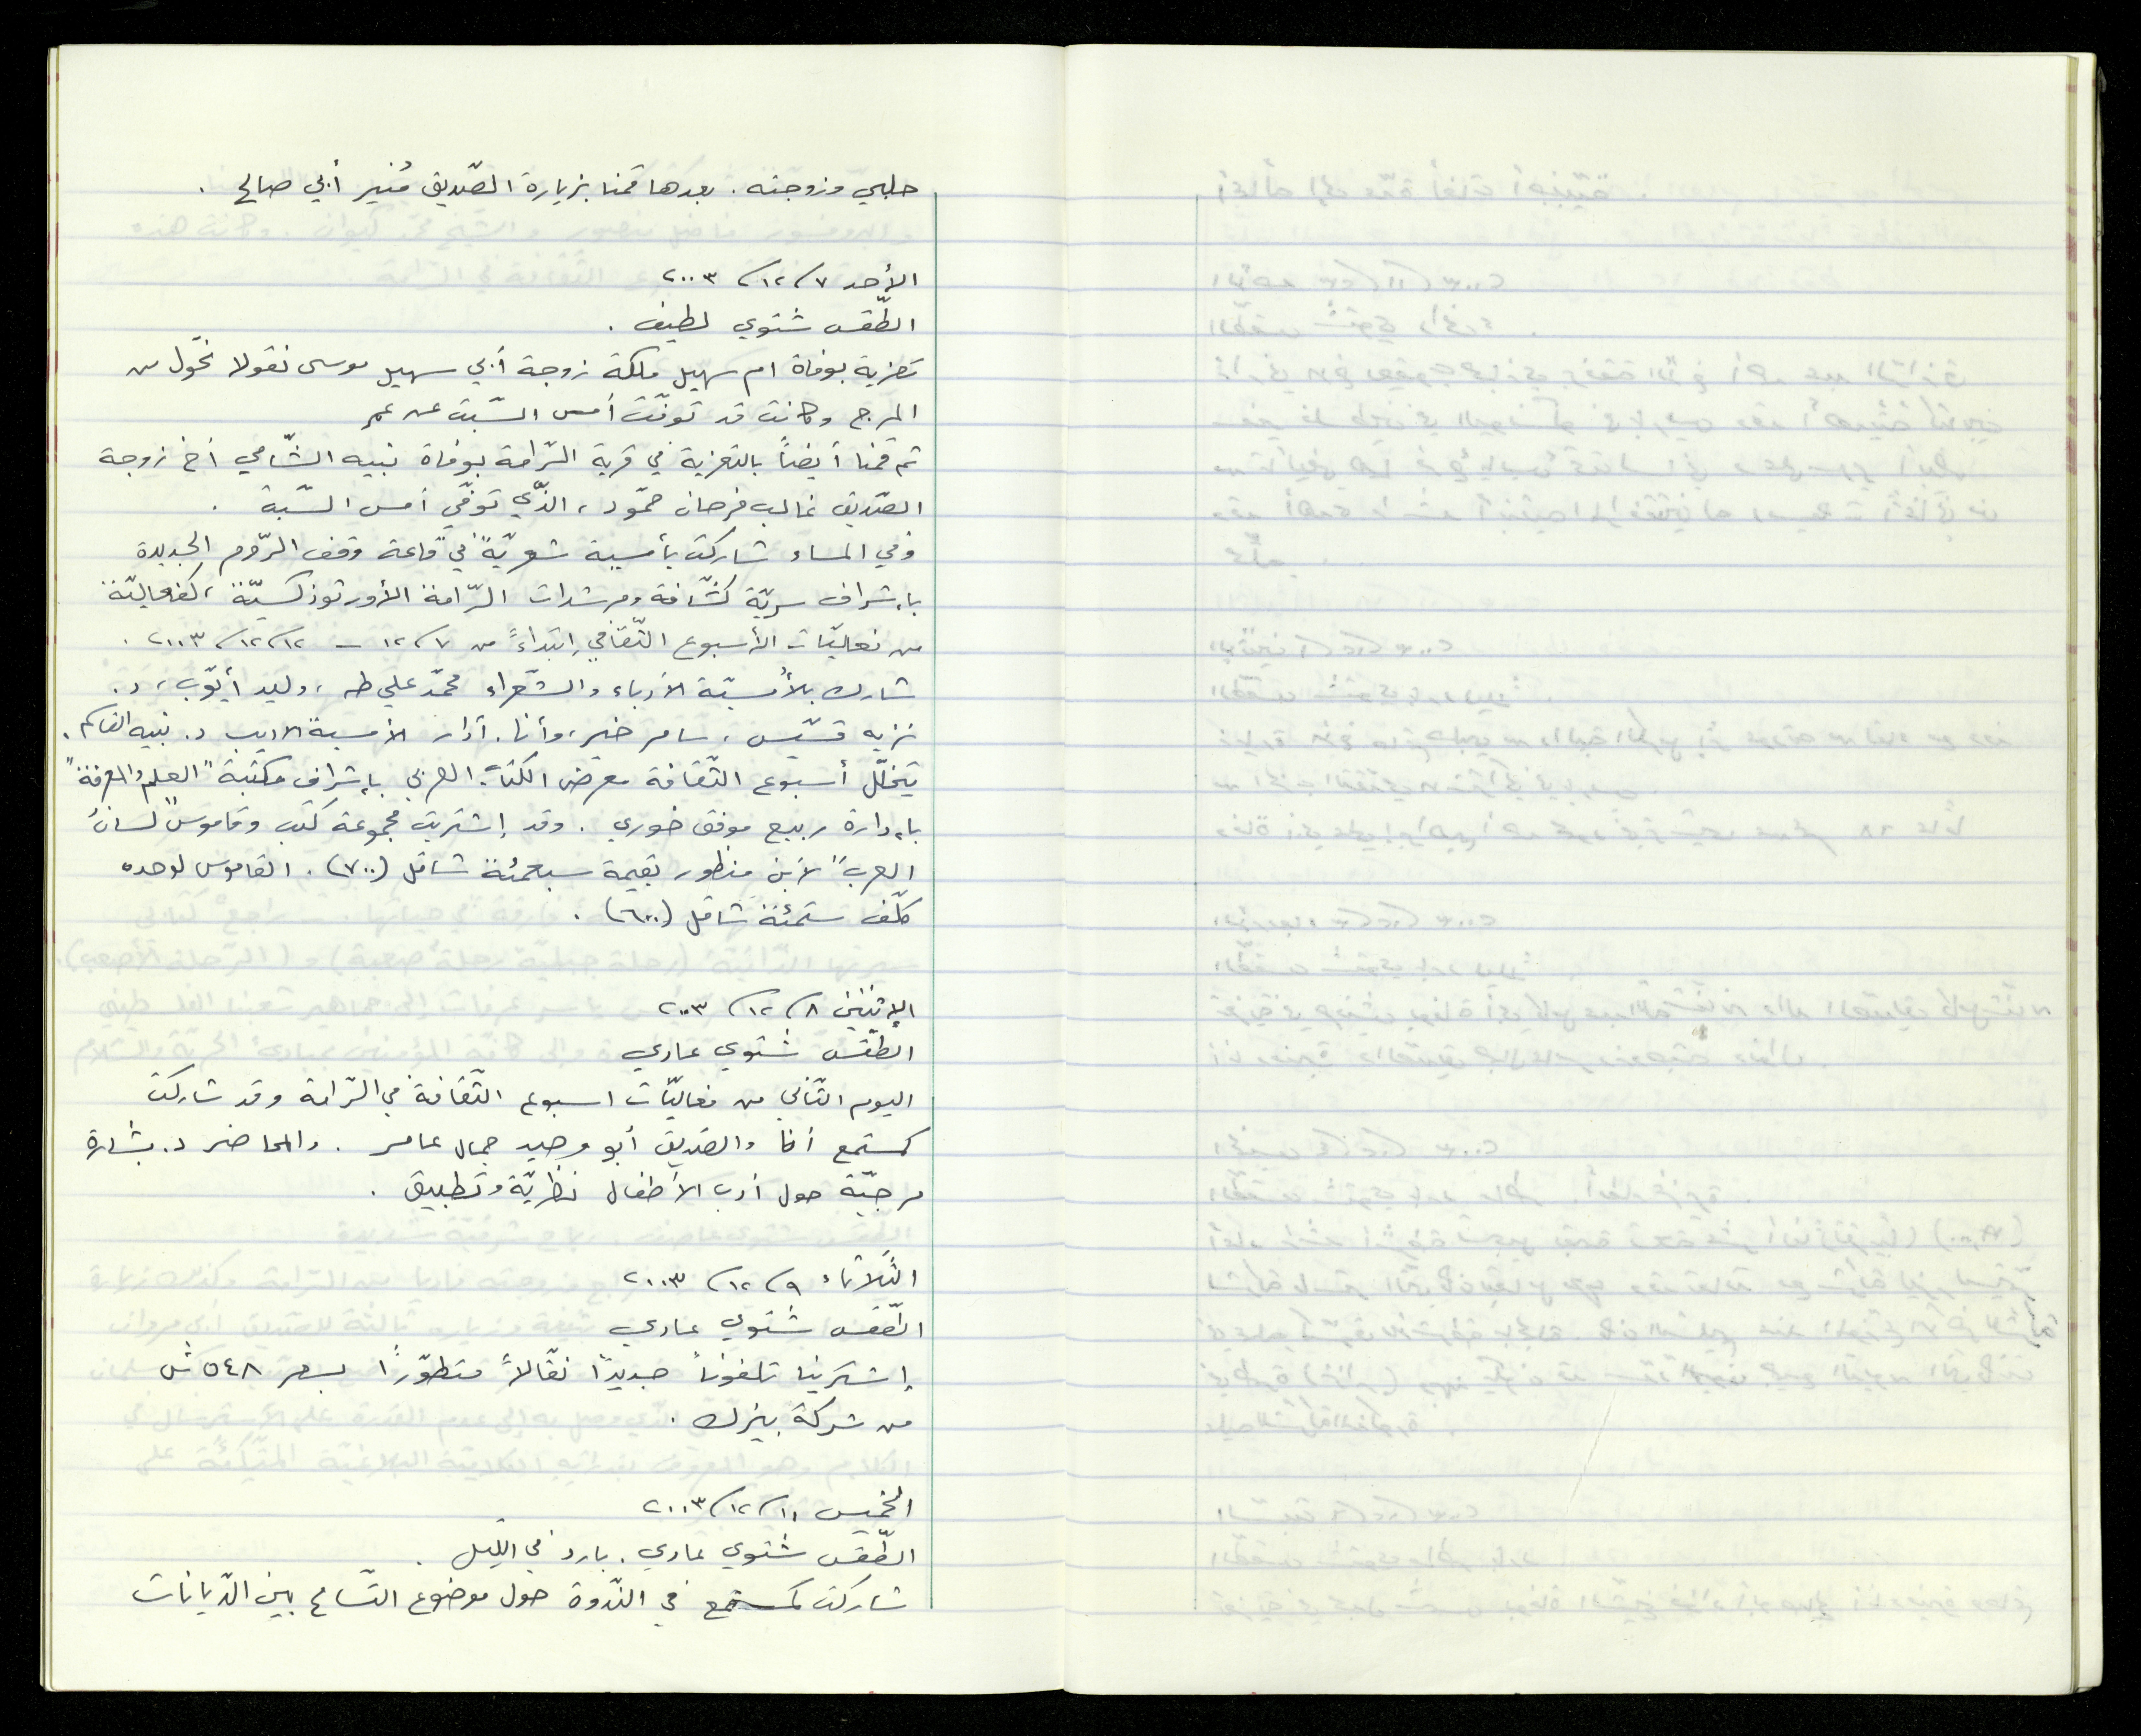 حلبي وزوجته. بعدها قمنا بزيارة الصّديق مُنير أبي صالح.
الأحد ٧/١٢/٢٠٠٣
الطّقس شتوي لطيف.
تعزية بوفاة ام سهيل ملكة زوجة أبي سهيل موسى نقولا نخّول من
المرج وكانت قد توفّت أمس السّبت عن عمر
ثم قمنا أيضاً بالتعزية في قرية الرّامة بوفاة نبيه الشّامي أخ زوجة
الصّديق غالب فرحان حمّود، الذّي توفّي أمس السّبة.
وفي المساء شاركت بأمسية شعريّة في قاعة وقف الرّوم الجديدة
بإشراف سريّة كشّافة ومرشدات الرّامة الأورتوذكسيّة، كفعاليّة
من فعاليّات الأسبوع الثّقافي إبتداءً من ٧/١٢ – ١٢/١٢/٢٠٠٣.
شارك بالأمسيّة الأدباء والشّعراء محمّد علي طه، وليد أيّوب، د.
نزيه قسّيس، سامر خير، وأنا. أدار الأمسية الاديب د. نبيه القاسم.
يتخلّل أسبوع الثّقافة معرض الكتاب العربي بإشراف مكتبة "العلم والمعرفة"
بإدارة ربيع موفق خوري. وقد إشتريت مجموعة كتب وقاموس "لسان
العرب" لابن منظور بقيمة سبعمئة شاقل (٧٠٠). القاموس لوحده
كلّف ستمئة شاقل (٦٠٠).
الإثنين ٨/١٢/٢٠٠٣
الطّقس شتوي عادي
اليوم الثّاني من فعاليّات اسبوع الثّقافة في الرّامة وقد شاركت
كمستمع أنا والصّديق أبو وحيد جمال عامر. والمحاضر د. بشارة
مرجيّة حول أدب الأطفال نظريّة وتطبيق.
الثّلاثاء ٩/١٢/٢٠٠٣
الطّقس شتوي عادي
إشترينا تلفوناً جديداً نقّالاً متطوّراً بسعر ٥٤٨ ش
من شركة بيزك.
الخميس ١١/١٢/٢٠٠٣
الطّقس شتوي عادي. بارد في الليل.
شاركت كمستمع في النّدوة حول موضوع التّسامح بين الدّيانات